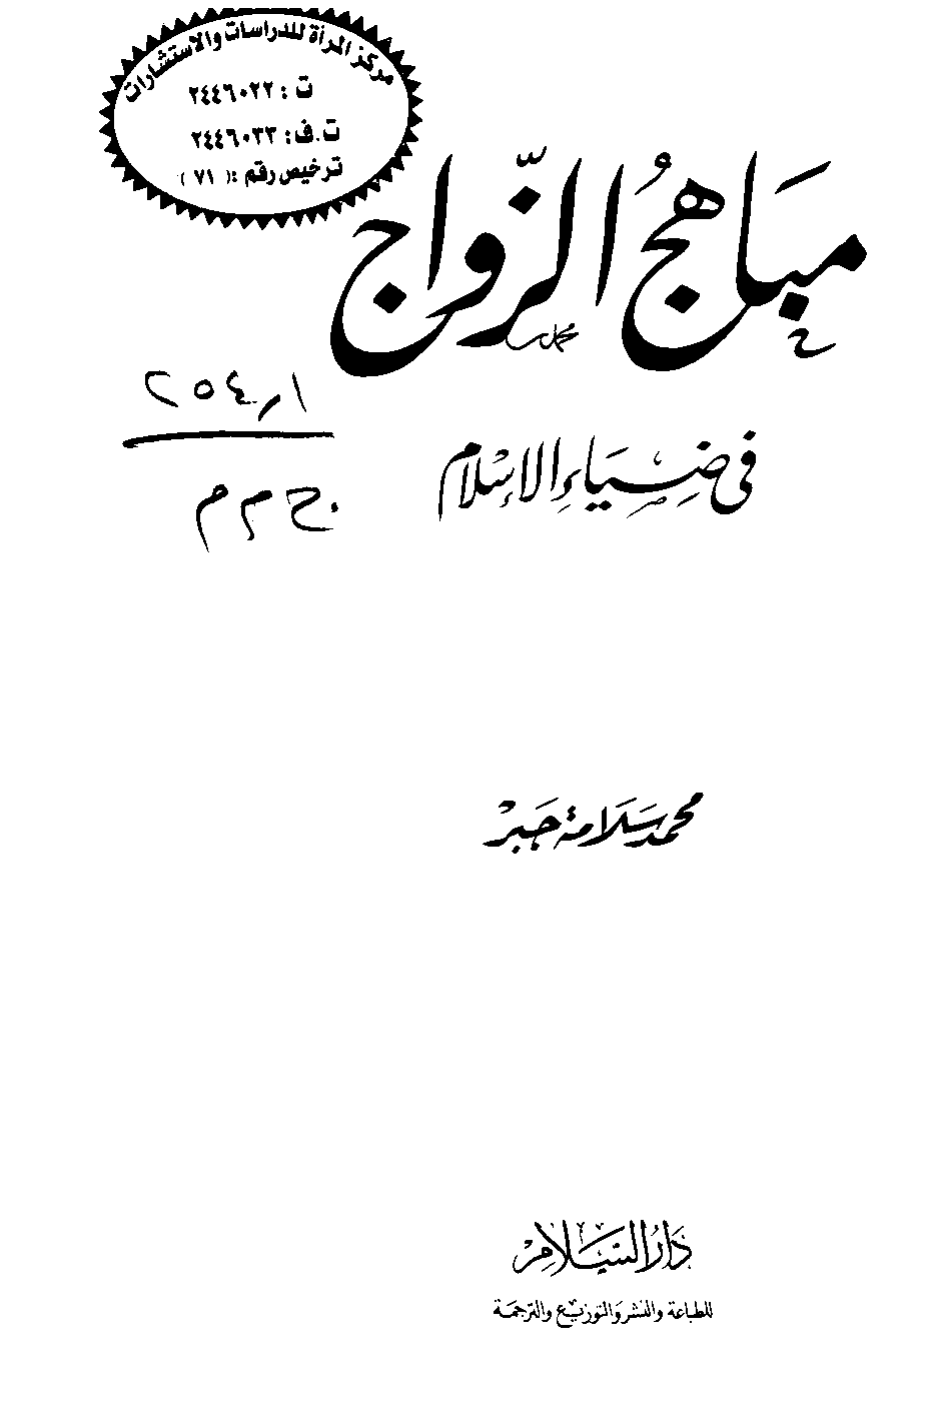 مركز المرأة للدراسات والاستشارات
ت : ٢٤٤٦٠٢٢
ت.ف: ٢٤٤٦٠٣٣
ترخيص رقم :( ٧١ )
مباهجُ الزّواج
في ضِيَاءِ الإسْلام
٢٥٤٫١
ج م م
محمد سَلَامة جَبرْ
دَارُ السَّلَامْ
للطباعة والنشر والتوزيع والترجمة